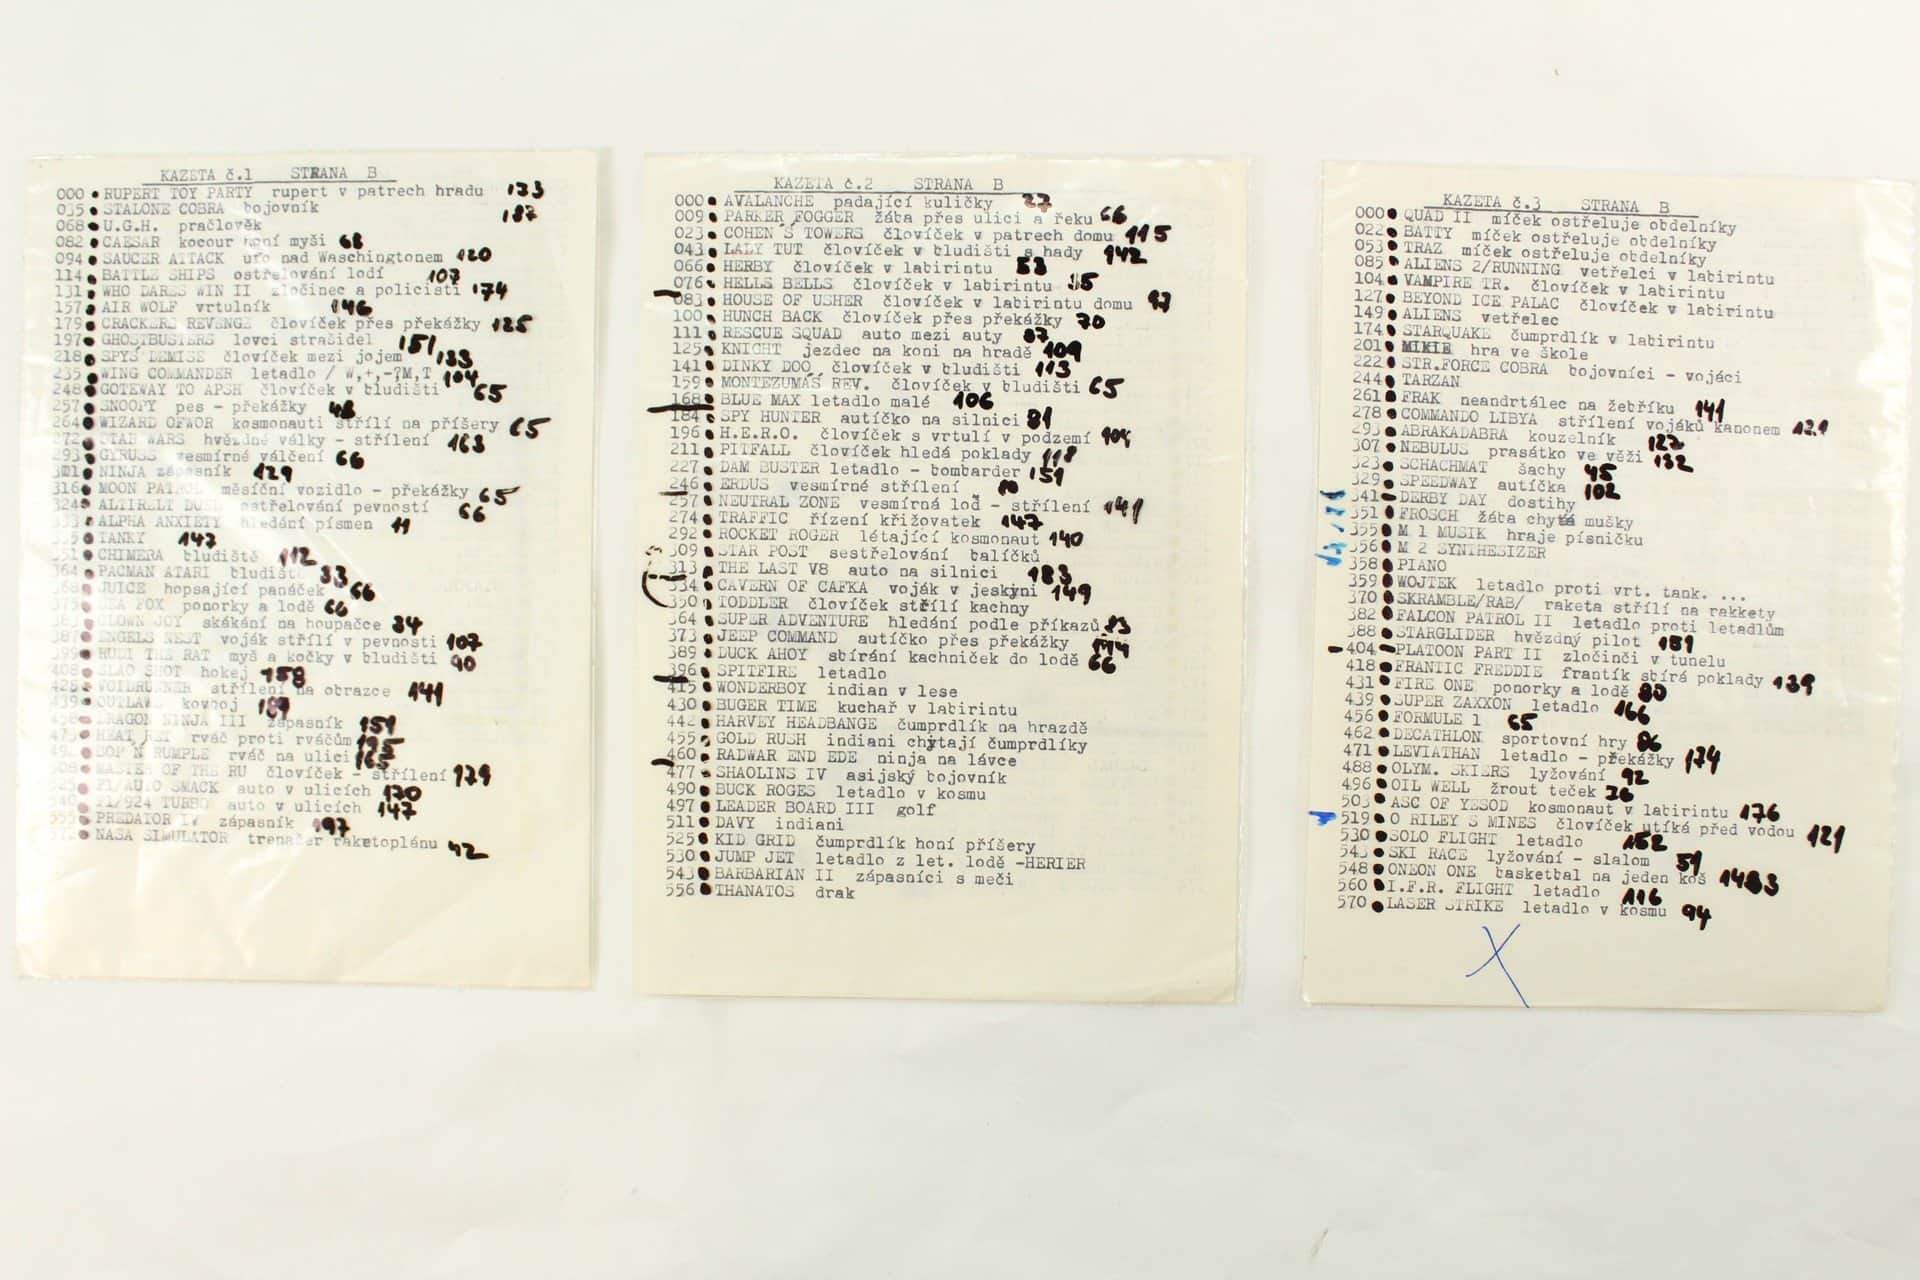 KAZETA č.1 STRANA B
000 RUPERT TOY PARTY rupert v patrech hradu 133
035 STALONE COBRA bojovník 187
068 U.G.H. pračlověk
082 CAESAR kocour honí myši 68
094 SAUCER ATTACK ufo nad Waschingtonem 120
114 BATTLE SHIPS ostřelování lodí 107
131 WHO DARES WIN II zločinec a policisti 174
157 AIR WOLF vrtulník 146
179 CRACKERS REVENGE človíček přes překážky 125
197 GHOSTBUSTERS lovci strašidel 151
218 SPYS DEMISE človíček mezi jojem 133
235 WING COMMANDER letadlo / W,+,-?M,T 104
248 GOTEWAY TO APSH človíček v bludišti 65
257 SNOOPY pes - překážky 48
264 WIZARD OFWOR kosmonauti střílí na příšery 65
272 STAR WARS hvězdné války - střílení 163
293 GYRUSS vesmírné válčení 66
301 NINJA zápasník 129
316 MOON PATROL měsíční vozidlo - překážky 65
324 ALTIRELT DUEL ostřelování pevností 66
333 ALPHA ANXIETY hledání písmen 11
335 TANKY 147
351 CHIMERA bludiště 112
364 PACMAN ATARI bludiště 33
368 JUICE hopsající panáček 66
375 SEA FOX ponorky a lodě 66
383 CLOWN JOY skákání na houpačce 34
387 ENGELS NEST voják střílí v pevnosti 107
399 RUDI THE RAT myš a kočky v bludišti 90
408 SLAO SHOT hokej 158
425 VOIDRUNNER střílení na obrazce 141
439 OUTLAWS kovboj
458 DRAGON NINJA III zápasník 151
475 HEAT SET rváč proti rváčům 195
492 BOP'N RUMPLE rváč na ulici 165
508 MASTER OF THE RU človíček - střílení 179
525 F1/AUTO SMACK auto v ulicích 170
540 F1/924 TURBO auto v ulicích 147
555 PREDATOR IV zápasník 197
572 NASA SIMULATOR trenažer raketoplánu 42
KAZETA č.2 STRANA B
000 AVALANCHE padající kuličky 27
009 PARKER FOGGER žába přes ulici a řeku 66
023 COHEN'S TOWERS človíček v patrech domu 115
043 LADY TUT človíček v bludišti s hady 142
066 HERBY človíček v labirintu 53
076 HELLS BELLS človíček v labirintu 55
083 HOUSE OF USHER človíček v labirintu domu 97
100 HUNCH BACK človíček přes překážky 70
111 RESCUE SQUAD auto mezi auty 87
125 KNIGHT jezdec na koni na hradě 109
141 DINKY DOO človíček v bludišti 113
159 MONTEZUMAS REV. človíček v bludišti 65
168 BLUE MAX letadlo malé 106
184 SPY HUNTER autíčko na silnici 81
196 H.E.R.O. človíček s vrtulí v podzemí 104
211 PITFALL človíček hledá poklady 118
227 DAM BUSTER letadlo - bombarder 151
246 ERDUS vesmírné střílení 80
257 NEUTRAL ZONE vesmírná loď - střílení 141
274 TRAFFIC řízení křižovatek 147
292 ROCKET ROGER létající kosmonaut 140
309 STAR POST sestřelování balíčků
313 THE LAST V8 auto na silnici 183
334 CAVERN OF CAFKA voják v jeskyni 149
350 TODDLER človíček střílí kachny
364 SUPER ADVENTURE hledání podle příkazů 83
373 JEEP COMMAND autíčko přes překážky 144
389 DUCK AHOY sbírání kachniček do lodě 66
396 SPITFIRE letadlo
415 WONDERBOY indian v lese
430 BUGER TIME kuchař v labirintu
442 HARVEY HEADBANGE čumprdlík na hrazdě
455 GOLD RUSH indiani chytají čumprdlíky
460 RADWAR END EDE ninja na lávce
477 SHAOLINS IV asijský bojovník
490 BUCK ROGES letadlo v kosmu
497 LEADER BOARD III golf
511 DAVY indiani
525 KID GRID čumprdlík honí příšery
530 JUMP JET letadlo z let. lodě -HERIER
543 BARBARIAN II zápasníci s meči
556 THANATOS drak
KAZETA č.3 STRANA B
000 QUAD II míček ostřeluje obdelníky
022 BATTY míček ostřeluje obdelníky
053 TRAZ míček ostřeluje obdelníky
085 ALIENS 2/RUNNING vetřelci v labirintu
104 VAMPIRE TR. človíček v labirintu
127 BEYOND ICE PALAC človíček v labirintu
149 ALIENS vetřelec
174 STARQUAKE čumprdlík v labirintu
201 MIKIE hra ve škole
222 STR.FORCE COBRA bojovníci - vojáci
244 TARZAN
261 FRAK neandrtálec na žebříku 141
278 COMMANDO LIBYA střílení vojáků kanonem 121
293 ABRAKADABRA kouzelník 122
307 NEBULUS prasátko ve věži 132
323 SCHACHMAT šachy 45
329 SPEEDWAY autíčka 102
341 DERBY DAY dostihy
351 FROSCH žába chytá mušky
355 M 1 MUSIK hraje písničku
356 M 2 SYNTHESIZER
358 PIANO
359 WOJTEK letadlo proti vrt. tank. ...
370 SKRAMBLE/RAB/ raketa střílí na rakkety
382 FALCON PATROL II letadlo proti letadlům
388 STARGLIDER hvězdný pilot 151
404 PLATOON PART II zločinči v tunelu
418 FRANTIC FREDDIE frantík sbírá poklady 139
431 FIRE ONE ponorky a lodě 80
439 SUPER ZAXXON letadlo 166
456 FORMULE 1 65
462 DECATHLON sportovní hry 86
471 LEVIATHAN letadlo - překážky 174
488 OLYM. SKIERS lyžování 92
496 OIL WELL žrout teček 36
503 ASC OF YESOD kosmonaut v labirintu 176
519 O RILEY S MINES človíček utíká před vodou 121
530 SOLO FLIGHT letadlo 152
543 SKI RACE lyžování - slalom 51
548 ONEON ONE basketbal na jeden koš
560 I.F.R. FLIGHT letadlo 116
570 LASER STRIKE letadlo v kosmu 94